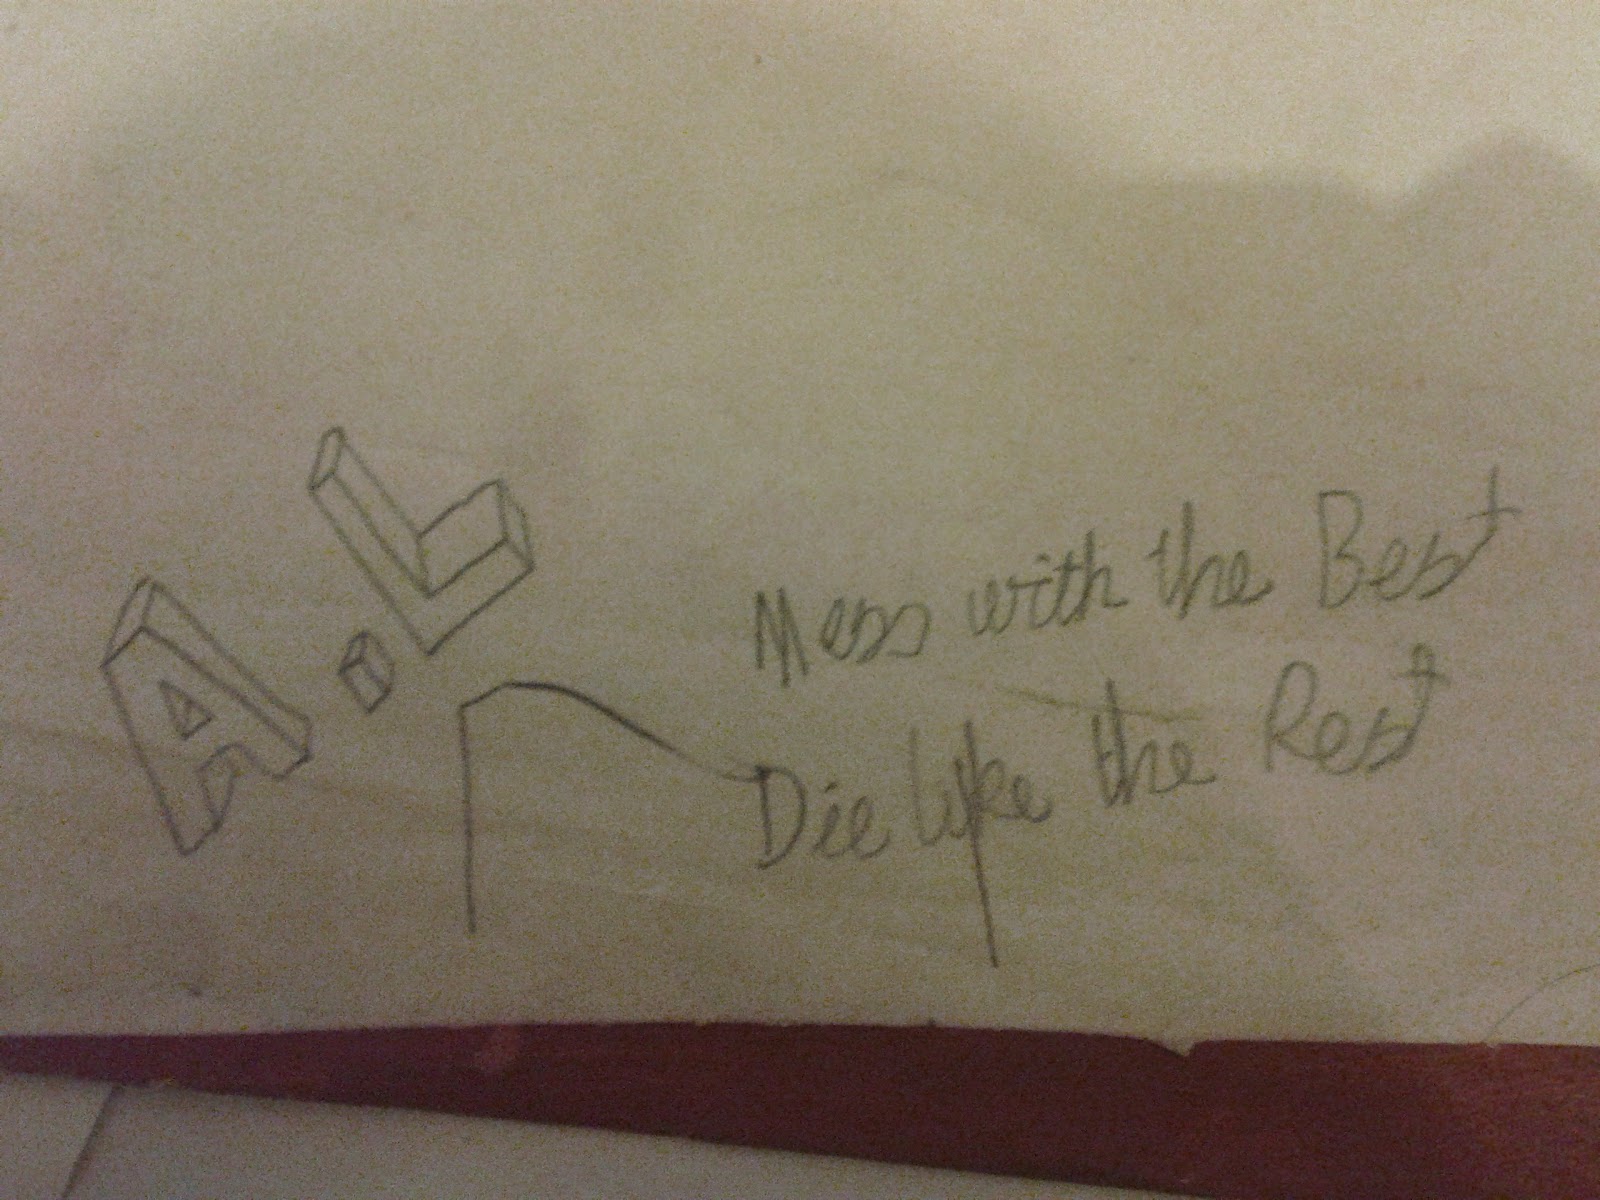 A.L
Mess with the Best
Die like the Rest